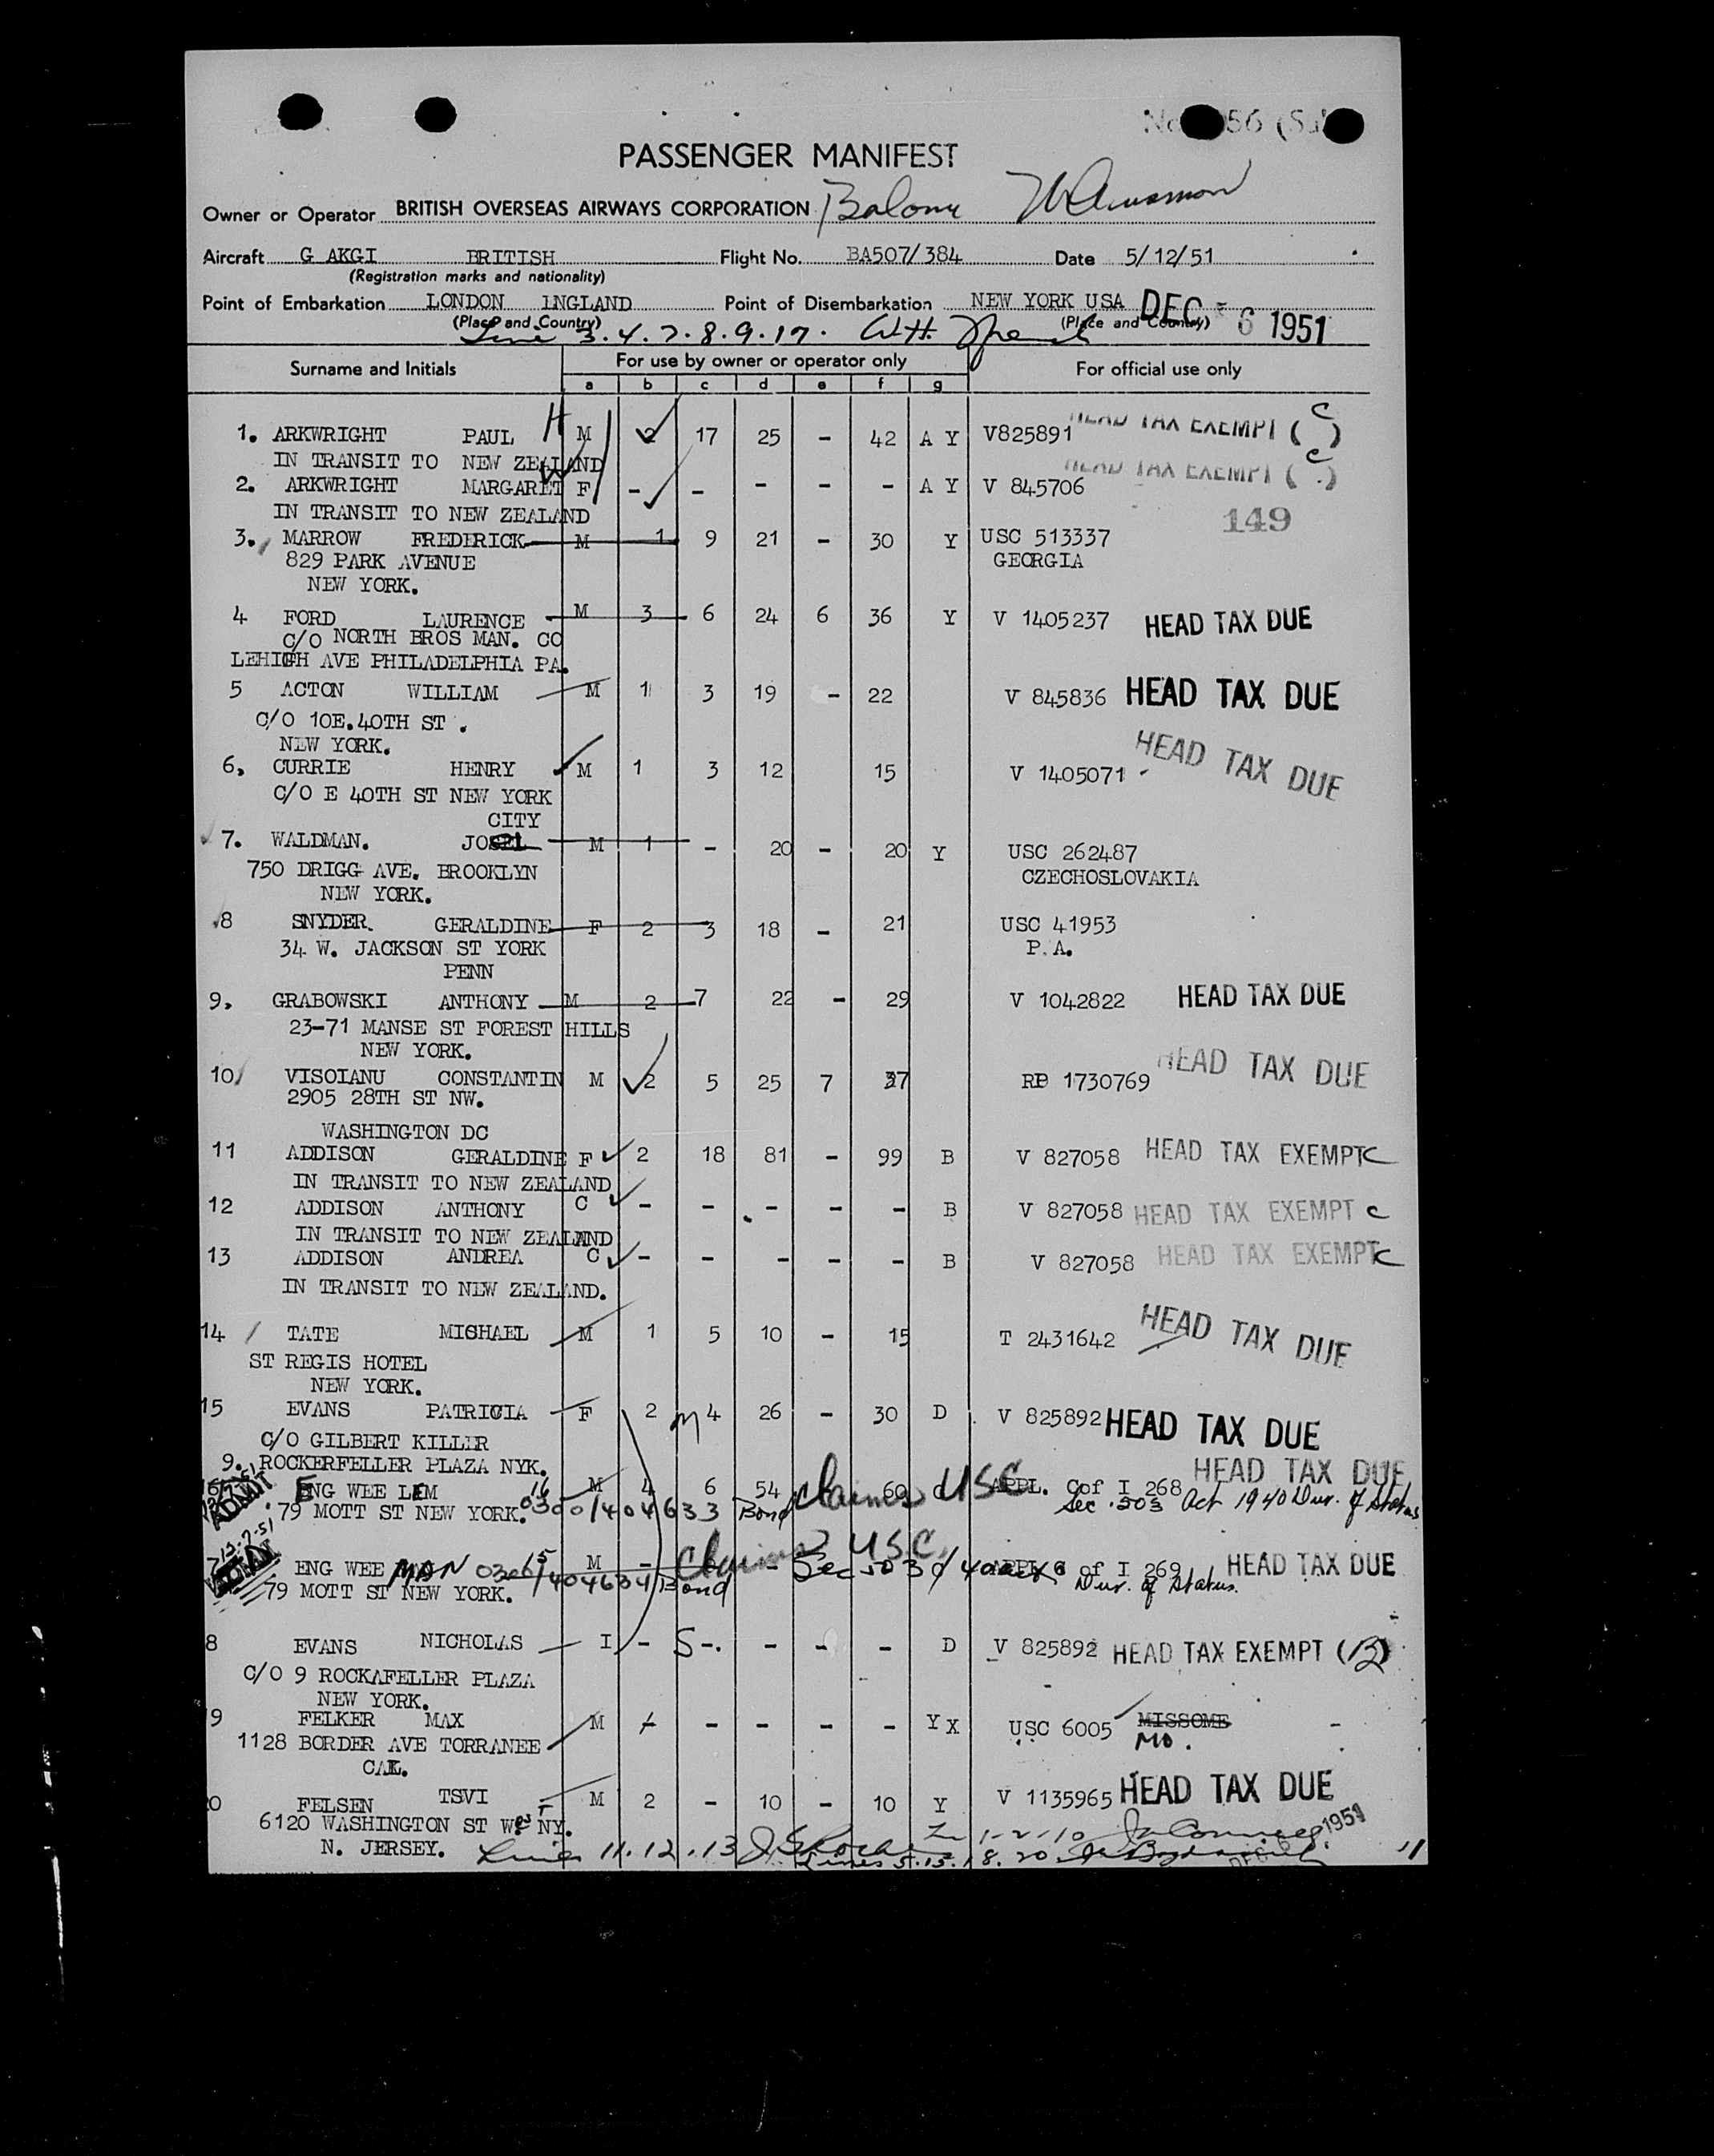 PASSENGER MANIFEST
Owner or Operator BRITISH OVERSEAS AIRWAYS CORPORATION
Aircraft G AKGI BRITISH Flight No. BA507/384 Date 5/12/51
(Registration marks and nationality)
Point of Embarkation LONDON 1NGLAND Point of Disembarkation NEW YORK USA DEC 6 1951
(Place and Country) (Place and Country)
Line 3.4.7.8.9.17.
Surname and Initials For use by owner or operator only For official use only
a b c d e f g
1. ARKWRIGHT PAUL H M 2 17 25 - 42 A Y V825891 HEAD TAX EXEMPT (C)
IN TRANSIT TO NEW ZEALAND
2. ARKWRIGHT MARGARET W F - - - - - A Y V 845706 HEAD TAX EXEMPT (C)
IN TRANSIT TO NEW ZEALAND 149
3. MARROW FREDERICK M 1 9 21 - 30 Y USC 513337
829 PARK AVENUE GEORGIA
NEW YORK.
4 FORD LAURENCE M 3 6 24 6 36 Y V 1405237 HEAD TAX DUE
C/O NORTH BROS MAN. CO
LEHIGH AVE PHILADELPHIA PA.
5 ACTON WILLIAM M 1 3 19 - 22 V 845836 HEAD TAX DUE
C/O 10E.40TH ST .
NEW YORK.
6, CURRIE HENRY M 1 3 12 15 V 1405071 HEAD TAX DUE
C/O E 40TH ST NEW YORK
CITY
7. WALDMAN. M 1 - 20 - 20 Y USC 262487
750 DRIGG AVE. BROOKLYN CZECHOSLOVAKIA
NEW YORK.
8 SNYDER. GERALDINE F 2 3 18 - 21 USC 41953
34 W. JACKSON ST YORK P.A.
PENN
9, GRABOWSKI ANTHONY M 2 7 22 - 29 V 1042822 HEAD TAX DUE
23-71 MANSE ST FOREST HILLS
NEW YORK.
10 VISOIANU CONSTANTIN M 2 5 25 7 37 RP 1730769 HEAD TAX DUE
2905 28TH ST NW.
WASHINGTON DC
11 ADDISON GERALDINE F 2 18 81 - 99 B V 827058 HEAD TAX EXEMPT C
IN TRANSIT TO NEW ZEALAND
12 ADDISON ANTHONY C - - - - - B V 827058 HEAD TAX EXEMPT C
IN TRANSIT TO NEW ZEALAND
13 ADDISON ANDREA C - - - - - B V 827058 HEAD TAX EXEMPT C
IN TRANSIT TO NEW ZEALAND.
14 TATE MICHAEL M 1 5 10 - 15 T 2431642 HEAD TAX DUE
ST REGIS HOTEL
NEW YORK.
15 EVANS PATRICIA F 2 M 4 26 - 30 D V 825892 HEAD TAX DUE
C/O GILBERT KILLER
9. ROCKERFELLER PLAZA NYK.
ADMIT ENG WEE LEM 16 M 4 6 54 60 Claims USC APPL. C of I 268 HEAD TAX DUE
79 MOTT ST NEW YORK. 0300/404633 Bond Sec. 503 Act 1940 Dur. of Status
12-7-51
ADMIT ENG WEE MAN M - Claims USC Sec 503 of 40 act APPL C of I 269 HEAD TAX DUE
79 MOTT ST NEW YORK. 404634 Bond Dur. of Status.
8 EVANS NICHOLAS I - S -. - - - D V 825892 HEAD TAX EXEMPT (B)
C/O 9 ROCKAFELLER PLAZA
NEW YORK.
9 FELKER MAX M - - - - - Y X USC 6005 MISSOME
1128 BORDER AVE TORRANEE MO.
CAL.
0 FELSEN TSVI M 2 - 10 - 10 Y V 1135965 HEAD TAX DUE
6120 WASHINGTON ST West NY.
N. JERSEY. Lines 11.12.13 Lines 5.15.18.20 1951